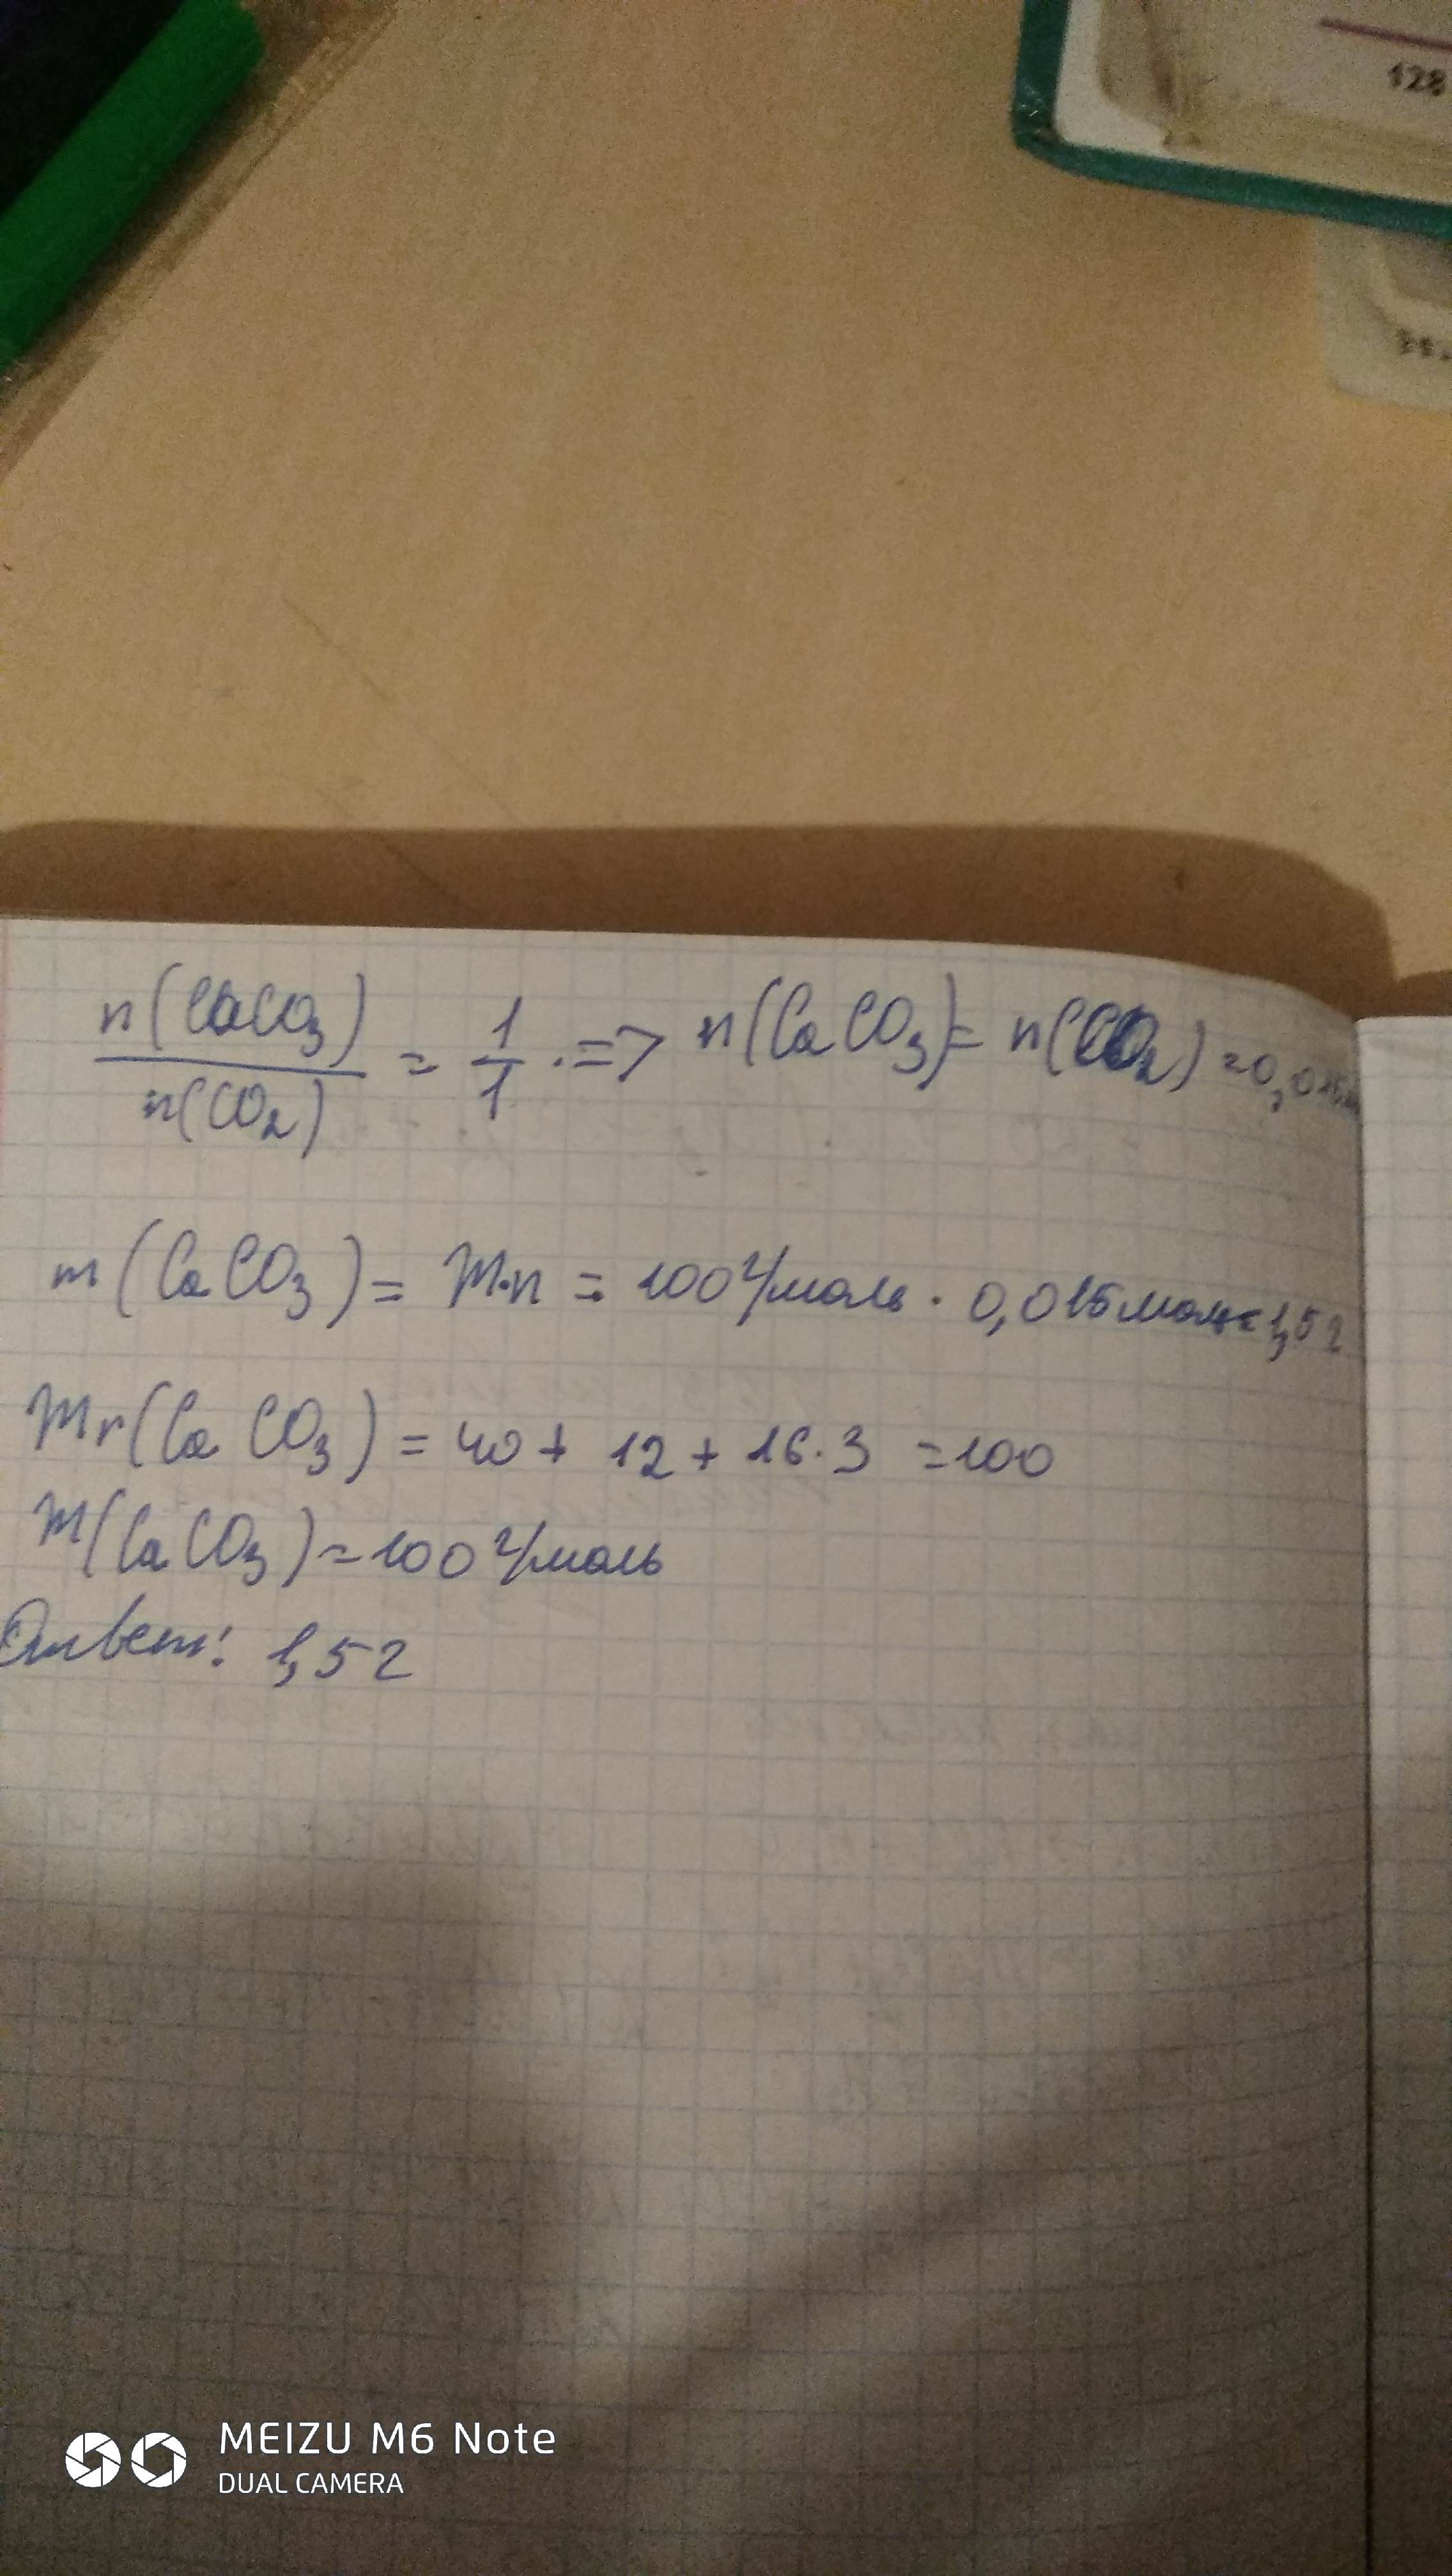 128
n(CaCO₃)
n(CO₂)
= 1/1 . => n(CaCO₃) = n(CO₂) = 0,015
m(CaCO₃) = M·n = 100 г/моль · 0,015 моль = 1,5 г
Mr(CaCO₃) = 40 + 12 + 16·3 = 100
M(CaCO₃) = 100 г/моль
Ответ: 1,5 г
MEIZU M6 Note
DUAL CAMERA